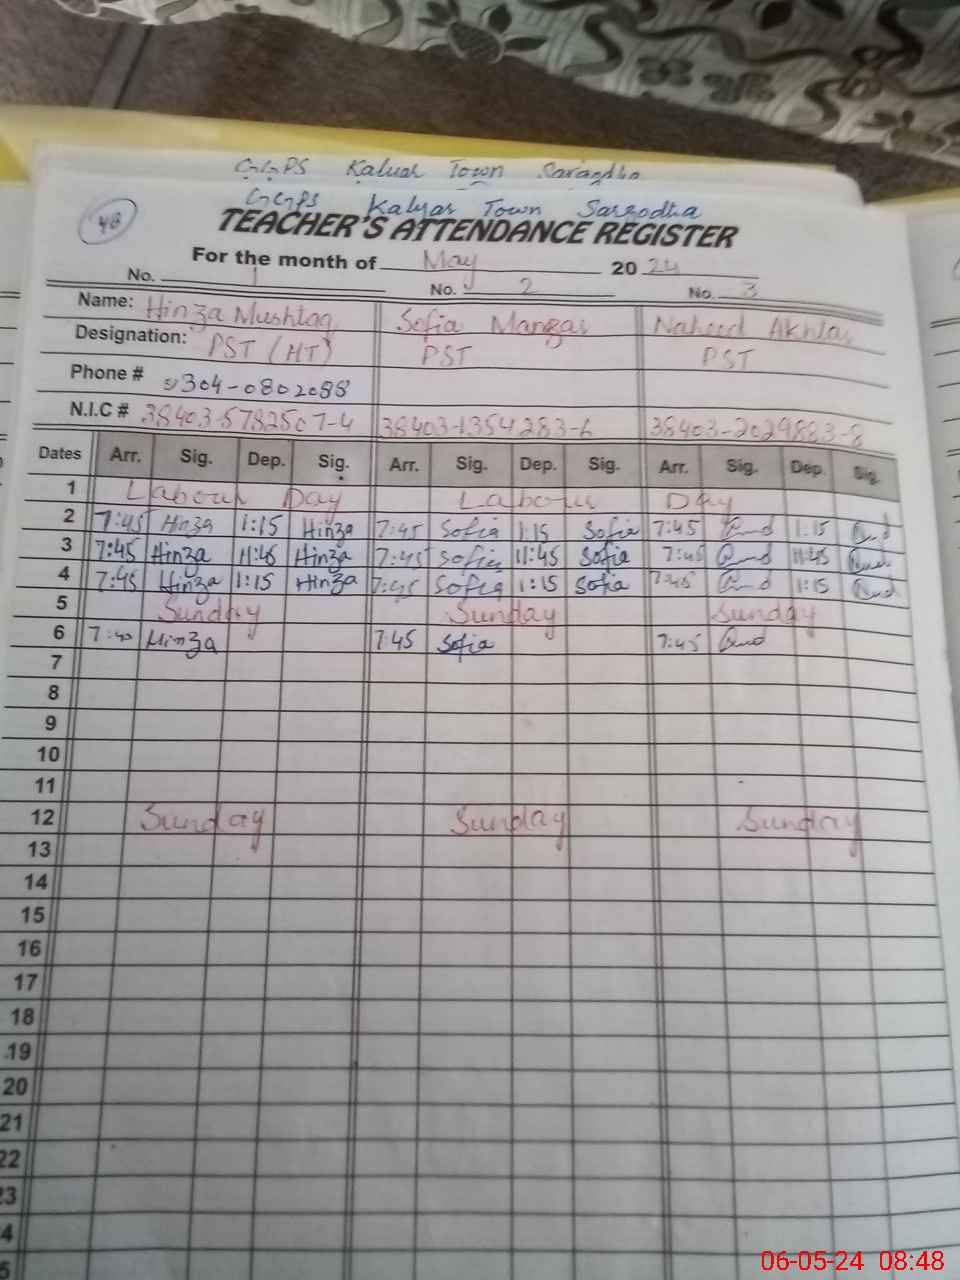 GGPS Kaluar Town Saragdha
GGPS Kalyar Town Sargodha
48
TEACHER'S ATTENDANCE REGISTER
For the month of May 2024
No. 1 No. 2 No. 3
Name: Hinza Mushtaq Sofia Manzar Naheed Akhtar
Designation: PST (HT) PST PST
Phone # 0304-0802088
N.I.C # 38403-5782507-4 38403-1354283-6 38403-2029883-8
Dates Arr. Sig. Dep. Sig. Arr. Sig. Dep. Sig. Arr. Sig. Dep. Sig.
1 Labour Day Labour Day
2 7:45 Hinza 1:15 Hinza 7:45 Sofia 1:15 Sofia 7:45 1:15
3 7:45 Hinza 11:45 Hinza 7:45 Sofia 11:45 Sofia 7:45 11:45
4 7:45 Hinza 1:15 Hinza 7:45 Sofia 1:15 Sofia 7:45 1:15
5 Sunday Sunday Sunday
6 7:40 Hinza 7:45 Sofia 7:45
7
8
9
10
11
12 Sunday Sunday Sunday
13
14
15
16
17
18
19
20
21
22
23
4
5
06-05-24 08:48